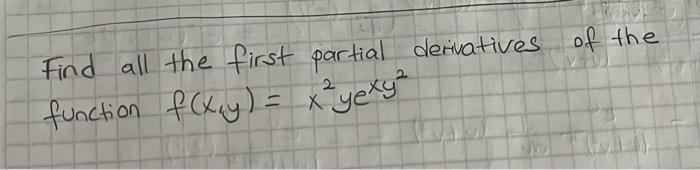 Find all the first partial derivatives of the
function f(x,y) = x²ye^xy²